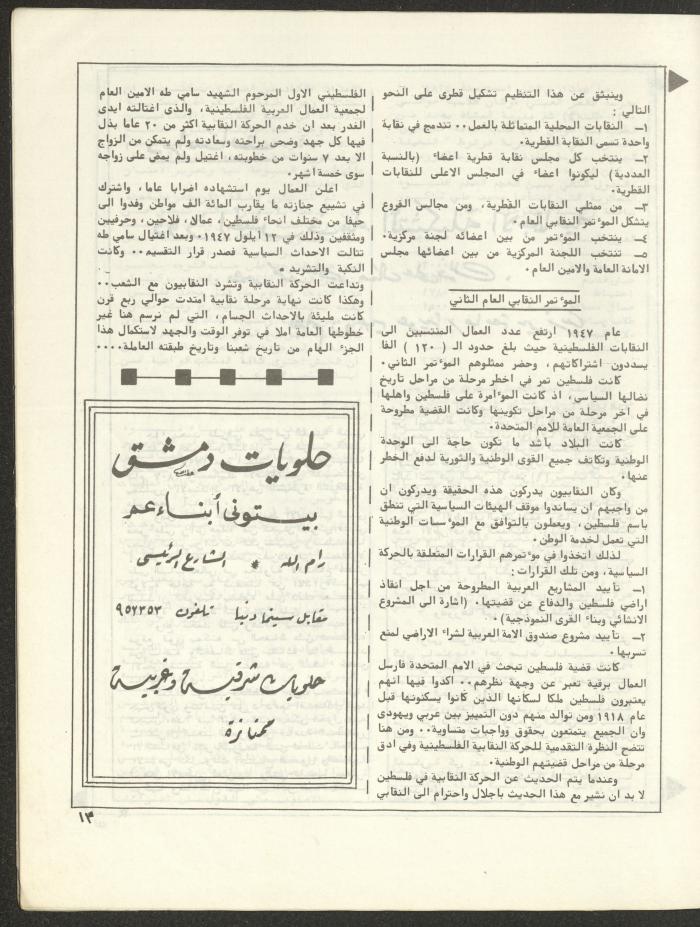 وينبثق عن هذا التنظيم تشكيل قطرى على النحو
التالي :
١ــ النقابات المحلية المتماثلة بالعمل٠٠ تندمج في نقابة
واحدة تسمى النقابة القطرية٠
٢ــ ينتخب كل مجلس نقابة قطرية اعضاء (بالنسبة
العددية) ليكونوا اعضاء في المجلس الاعلى للنقابات
القطرية٠
٣ــ من ممثلي النقابات القطرية، ومن مجالس الفروع
يتشكل الموءتمر النقابي العام٠
٤ــ ينتخب الموءتمر من بين اعضائه لجنة مركزية٠
٥ــ تنتخب اللجنة المركزية من بين اعضائها مجلس
الامانة العامة والامين العام٠
الموءتمر النقابي العام الثاني
عام ١٩٤٧ ارتفع عدد العمال المنتسبين الى
النقابات الفلسطينية حيث بلغ حدود الـ ( ١٢٠ ) الفا
يسددون اشتراكاتهم، وحضر ممثلوهم الموءتمر الثاني٠
كانت فلسطين تمر في اخطر مرحلة من مراحل تاريخ
نضالها السياسي، اذ كانت الموءامرة على فلسطين واهلها
في آخر مرحلة من مراحل تكوينها وكانت القضية مطروحة
على الجمعية العامة للامم المتحدة٠
كانت البلاد باشد ما تكون حاجة الى الوحدة
الوطنية وتكاتف جميع القوى الوطنية والثورية لدفع الخطر
عنها٠
وكان النقابيون يدركون هذه الحقيقة ويدركون ان
من واجبهم ان يساندوا موقف الهيئات السياسية التي تنطق
باسم فلسطين، ويعملون بالتوافق مع الموءسسات الوطنية
التي تعمل لخدمة الوطن٠
لذلك اتخذوا في موءتمرهم القرارات المتعلقة بالحركة
السياسية، ومن تلك القرارات :
١ــ تأييد المشاريع العربية المطروحة من اجل انقاذ
اراضي فلسطين والدفاع عن قضيتها٠ (اشارة الى المشروع
الانشائي وبناء القرى النموذجية)٠
٢ــ تأييد مشروع صندوق الامة العربية لشراء الاراضي لمنع
تسربها٠
كانت قضية فلسطين تبحث في الامم المتحدة فارسل
العمال برقية تعبر عن وجهة نظرهم٠٠ اكدوا فيها انهم
يعتبرون فلسطين ملكا لسكانها الذين كانوا يسكنونها قبل
عام ١٩١٨ ومن توالد منهم دون التمييز بين عربي ويهودى
وان الجميع يتمتعون بحقوق وواجبات متساوية٠٠ ومن هنا
تتضح النظرة التقدمية للحركة النقابية الفلسطينية وفي ادق
مرحلة من مراحل قضيتهم الوطنية٠
وعندما يتم الحديث عن الحركة النقابية في فلسطين
لا بد ان نشير مع هذا الحديث باجلال واحترام الى النقابي
الفلسطيني الاول المرحوم الشهيد سامي طه الامين العام
لجمعية العمال العربية الفلسطينية، والذى اغتالته ايدى
الغدر بعد ان خدم الحركة النقابية اكثر من ٢٠ عاما بذل
فيها كل جهد وضحى براحته وسعادته ولم يتمكن من الزواج
الا بعد ٧ سنوات من خطوبته، اغتيل ولم يمض على زواجه
سوى خمسة اشهر٠
اعلن العمال يوم استشهاده اضرابا عاما، واشترك
في تشييع جنازته ما يقارب المائة الف مواطن وفدوا الى
حيفا من مختلف انحاء فلسطين، عمالا، فلاحين، وحرفيين
ومثقفين وذلك في ١٢ أيلول ١٩٤٧٠ وبعد اغتيال سامي طه
تتالت الاحداث السياسية فصدر قرار التقسيم٠٠ وكانت
النكبة والتشريد ٠
وتداعت الحركة النقابية وتشرد النقابيون مع الشعب٠٠
وهكذا كانت نهاية مرحلة نقابية امتدت حوالي ربع قرن
كانت مليئة بالاحداث الجسام، التي لم نرسم هنا غير
خطوطها العامة املا في توفر الوقت والجهد لاستكمال هذا
الجزء الهام من تاريخ شعبنا وتاريخ طبقته العاملة٠٠٠٠
حلويات دمشق
بيتوني أبناء عم
رام الله * الشارع الرئيسي
مقابل سينما دنيا تلفون ٩٥٢٣٥٣
حلويات شرقية وغربية
ممتازة
١٣